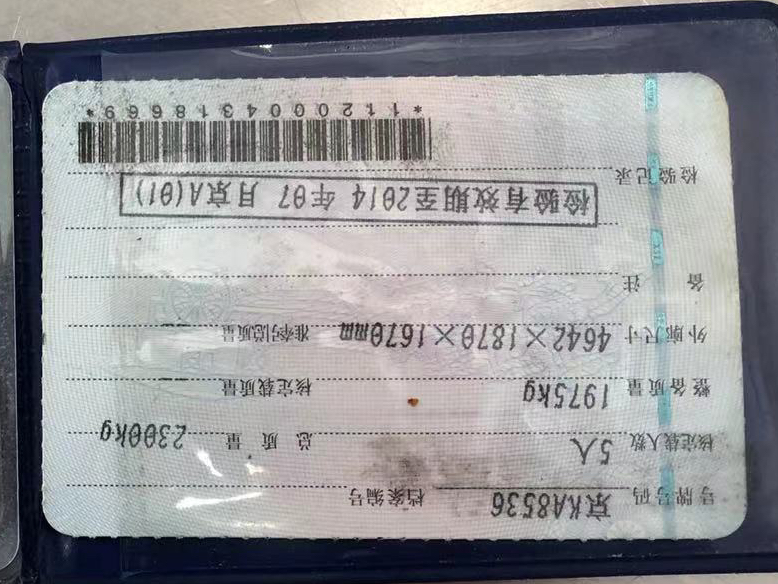 号牌号码 京KA8536 档案编号
核定载人数 5人 总质量 2300kg
整备质量 1975kg 核定载质量
外廓尺寸 4642×1870×1670mm 准牵引总质量
备注
检验有效期至2014 年07 月京A(01)
检验记录
*1120004318669*